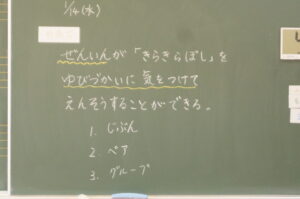 1/14(水)
ぜんいんが「きらきらぼし」を
ゆびづかいに気をつけて
えんそうすることができる。
1. じぶん
2. ペア
3. グループ